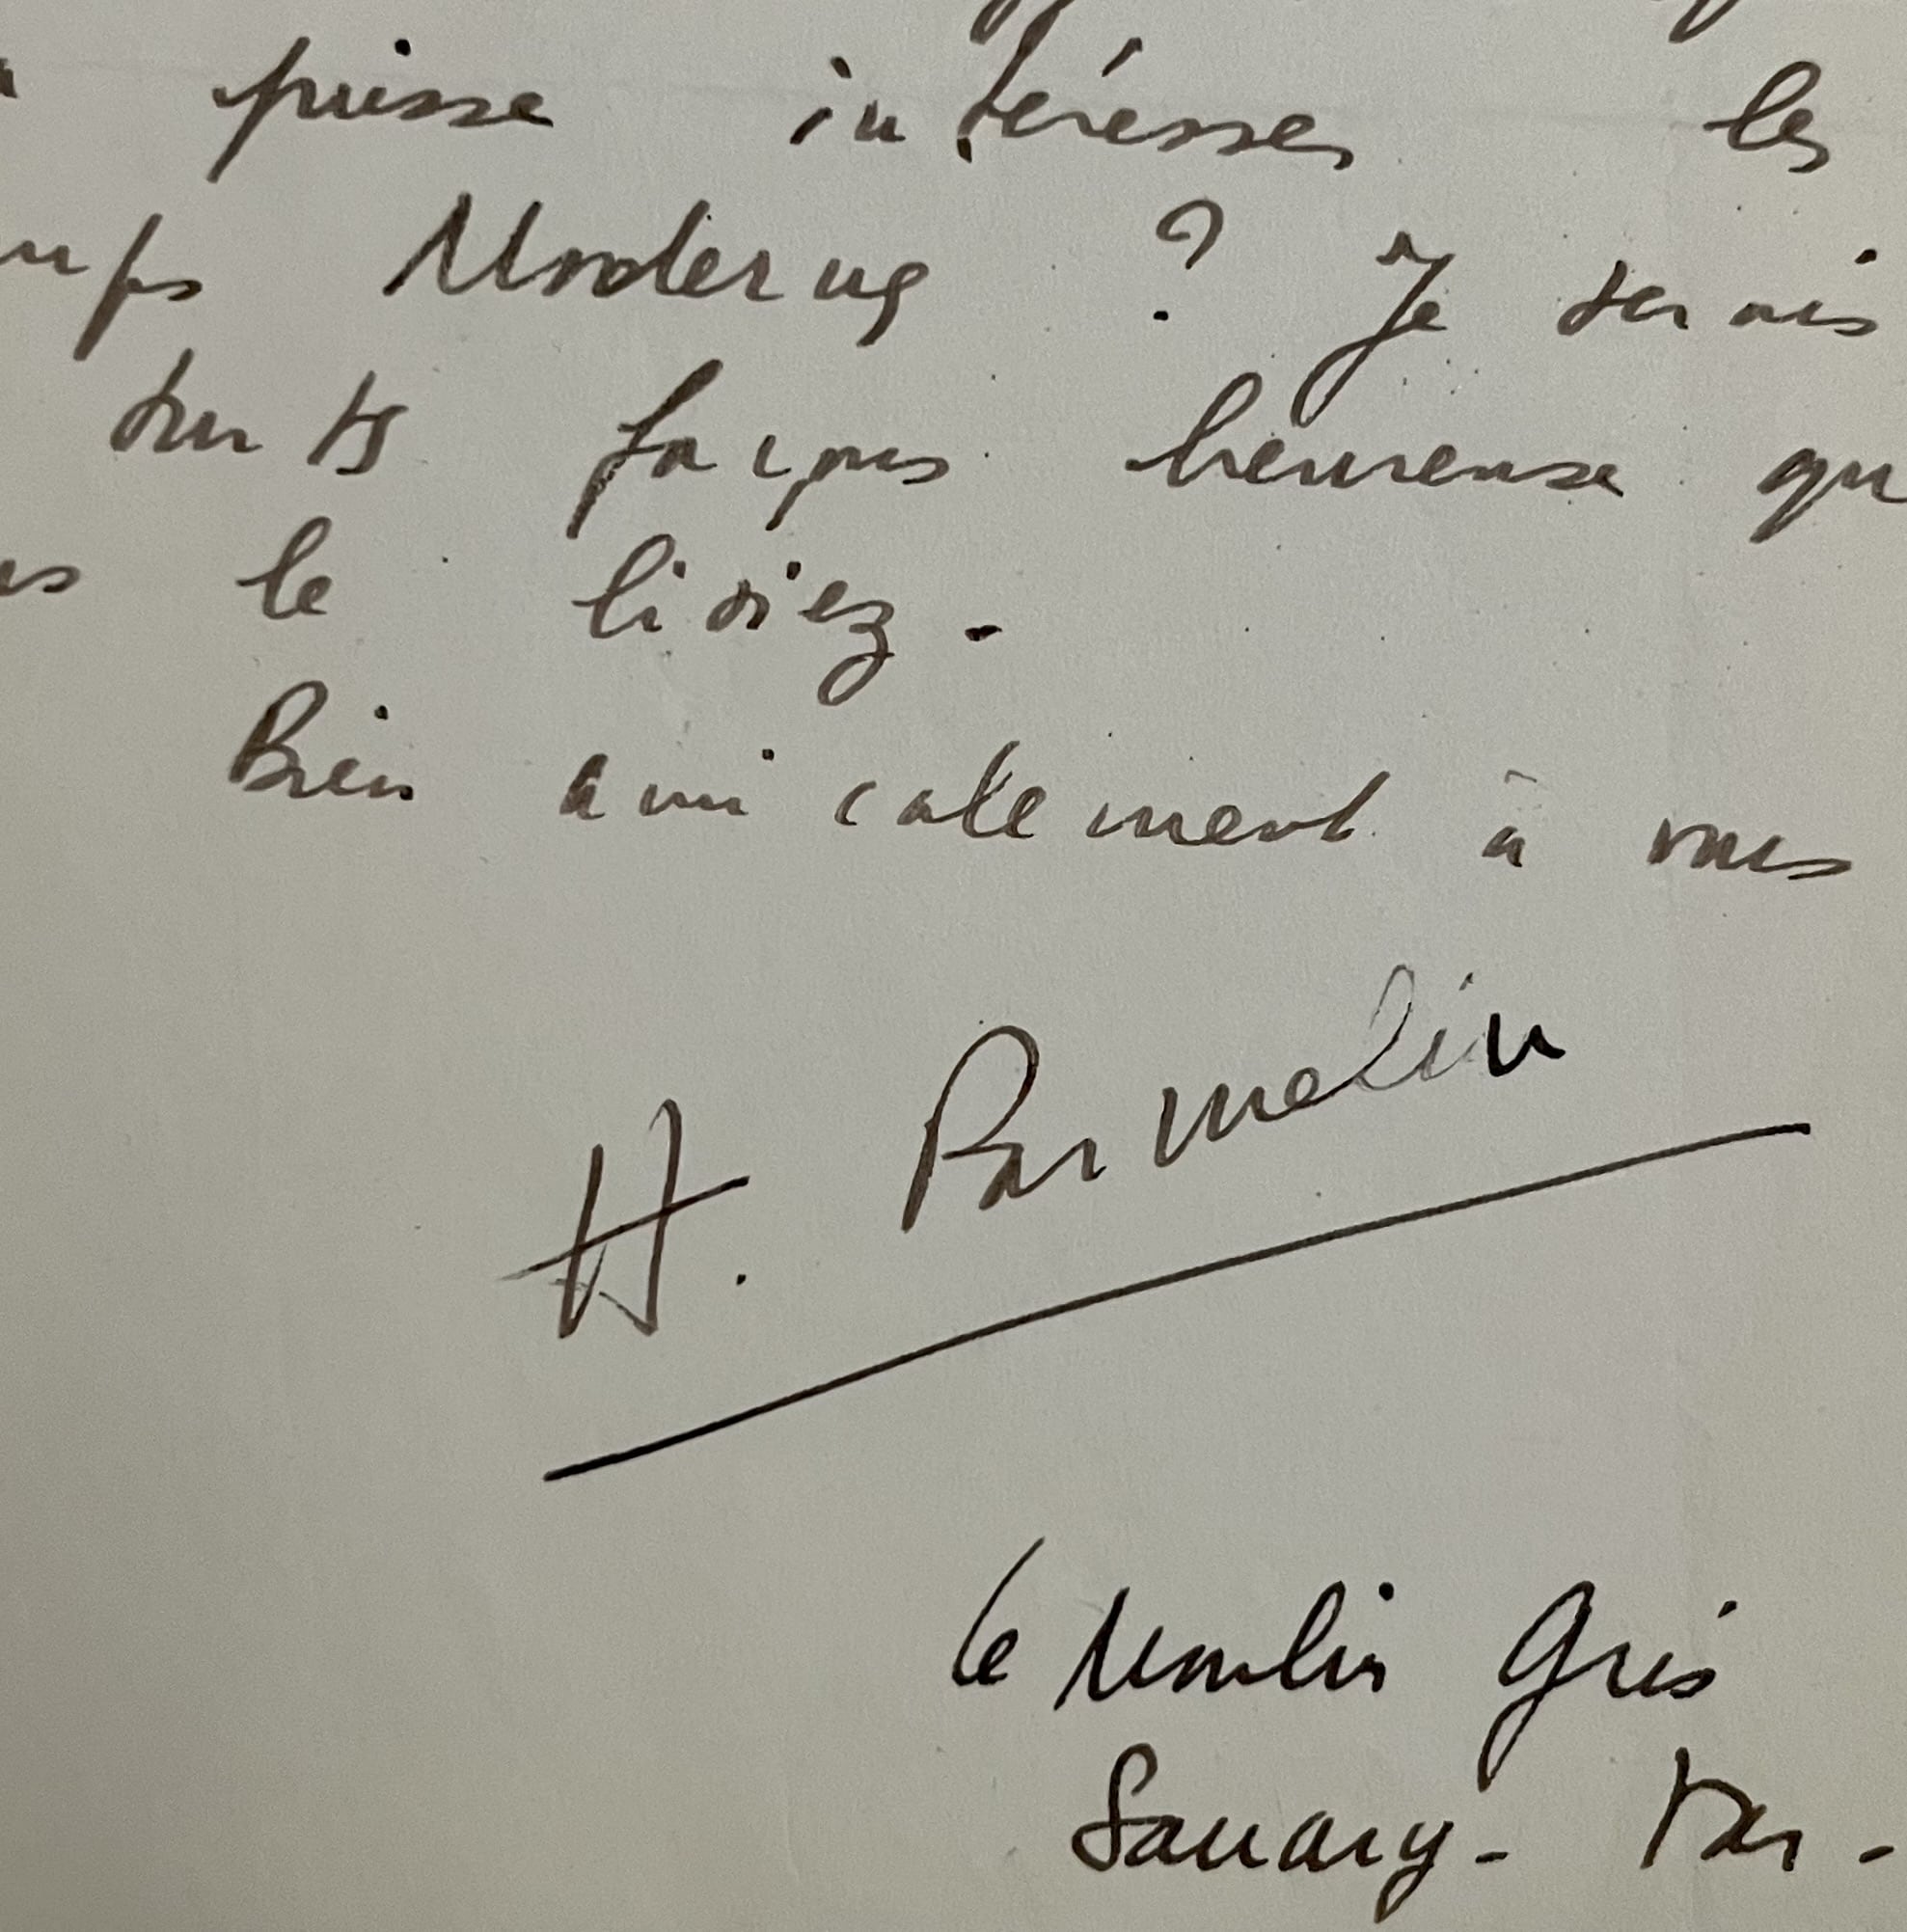 puisse intéresser les
Modernes ? Je serais
toutes façons heureuse qu
le lisiez.
Bien amicalement à vous
H. Parmelin
Le Moulin Gris
Sanary - Var -